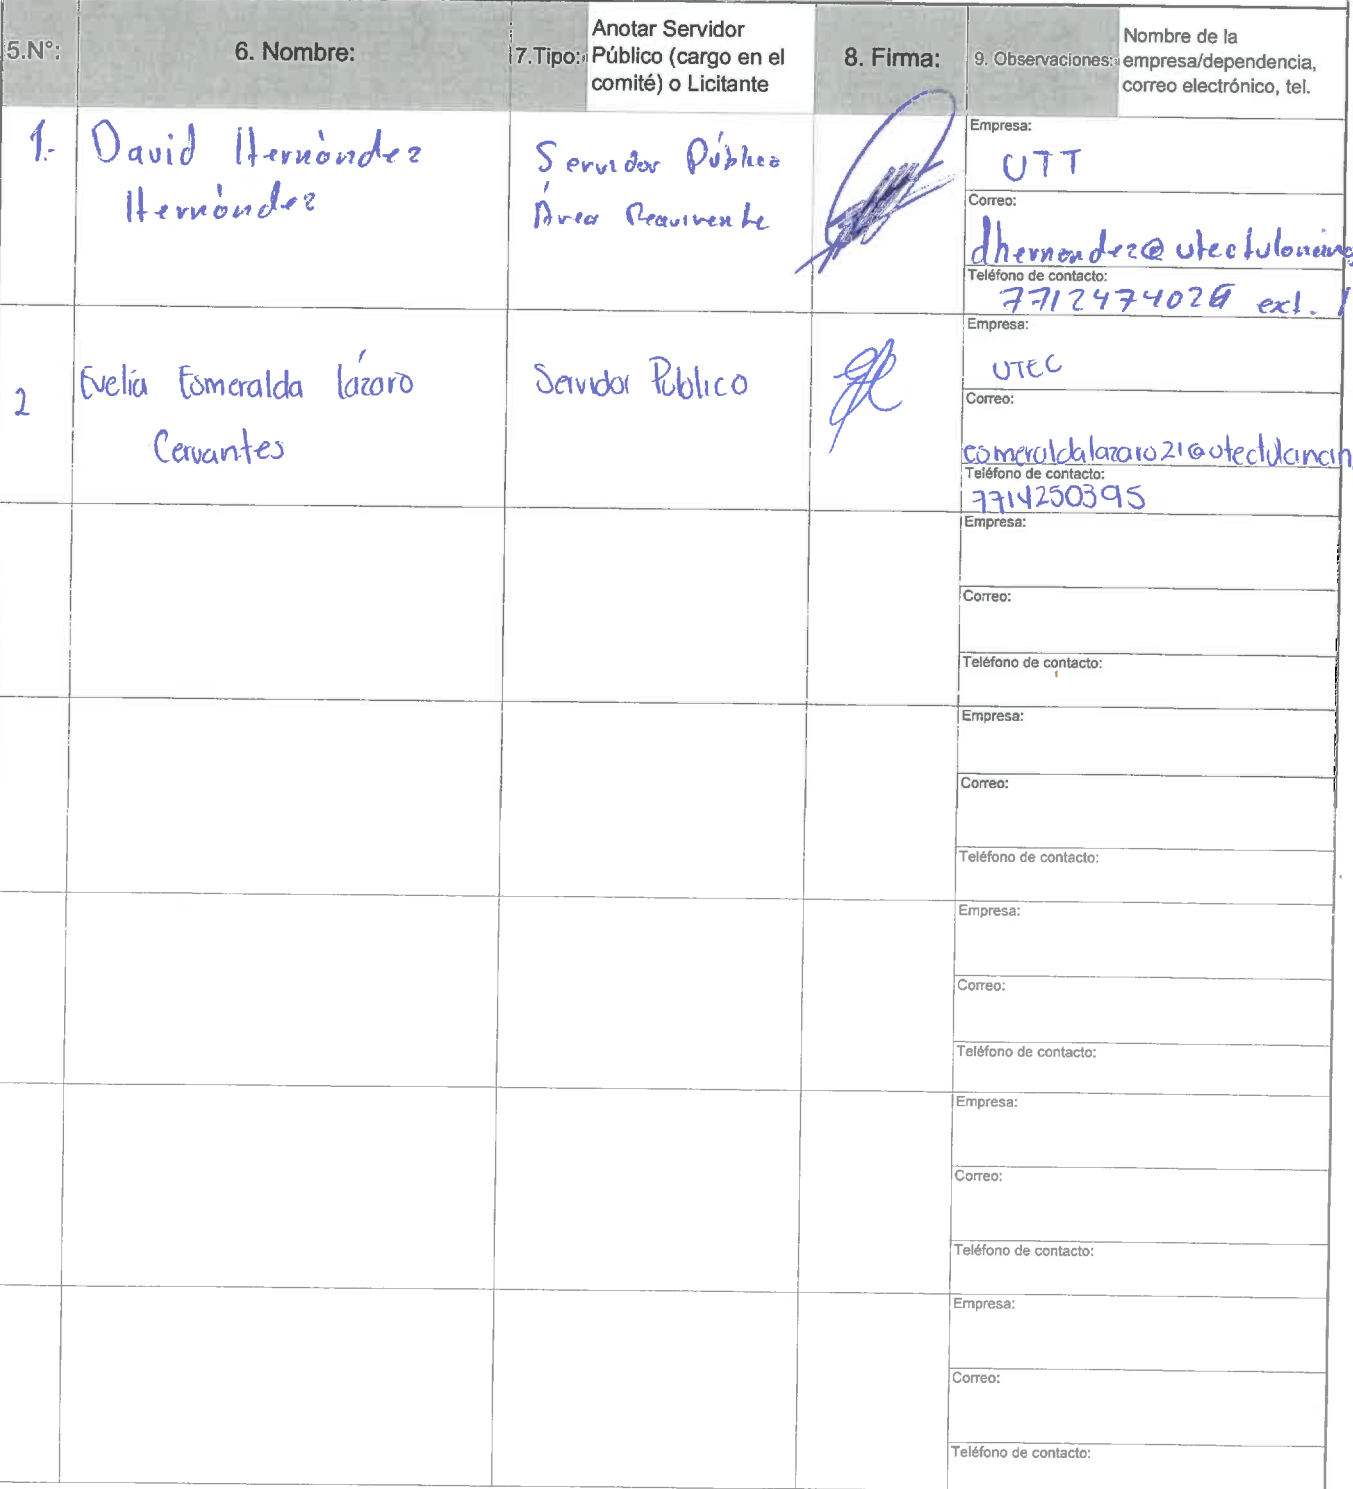 5.N°:
6. Nombre:
7.Tipo:
Anotar Servidor
Público (cargo en el
comité) o Licitante
8. Firma:
9. Observaciones:
Nombre de la
empresa/dependencia,
correo electrónico, tel.
1.-
David Hernández
Hernández
Servidor Público
Área Requirente
Empresa:
UTT
Correo:
Teléfono de contacto:
ext.
2
Evelia Esmeralda lázaro
Cervantes
Servidor Publico
Empresa:
UTEC
Correo:
Teléfono de contacto:
7714250395
Empresa:
Correo:
Teléfono de contacto:
Empresa:
Correo:
Teléfono de contacto:
Empresa:
Correo:
Teléfono de contacto:
Empresa:
Correo:
Teléfono de contacto:
Empresa:
Correo:
Teléfono de contacto: